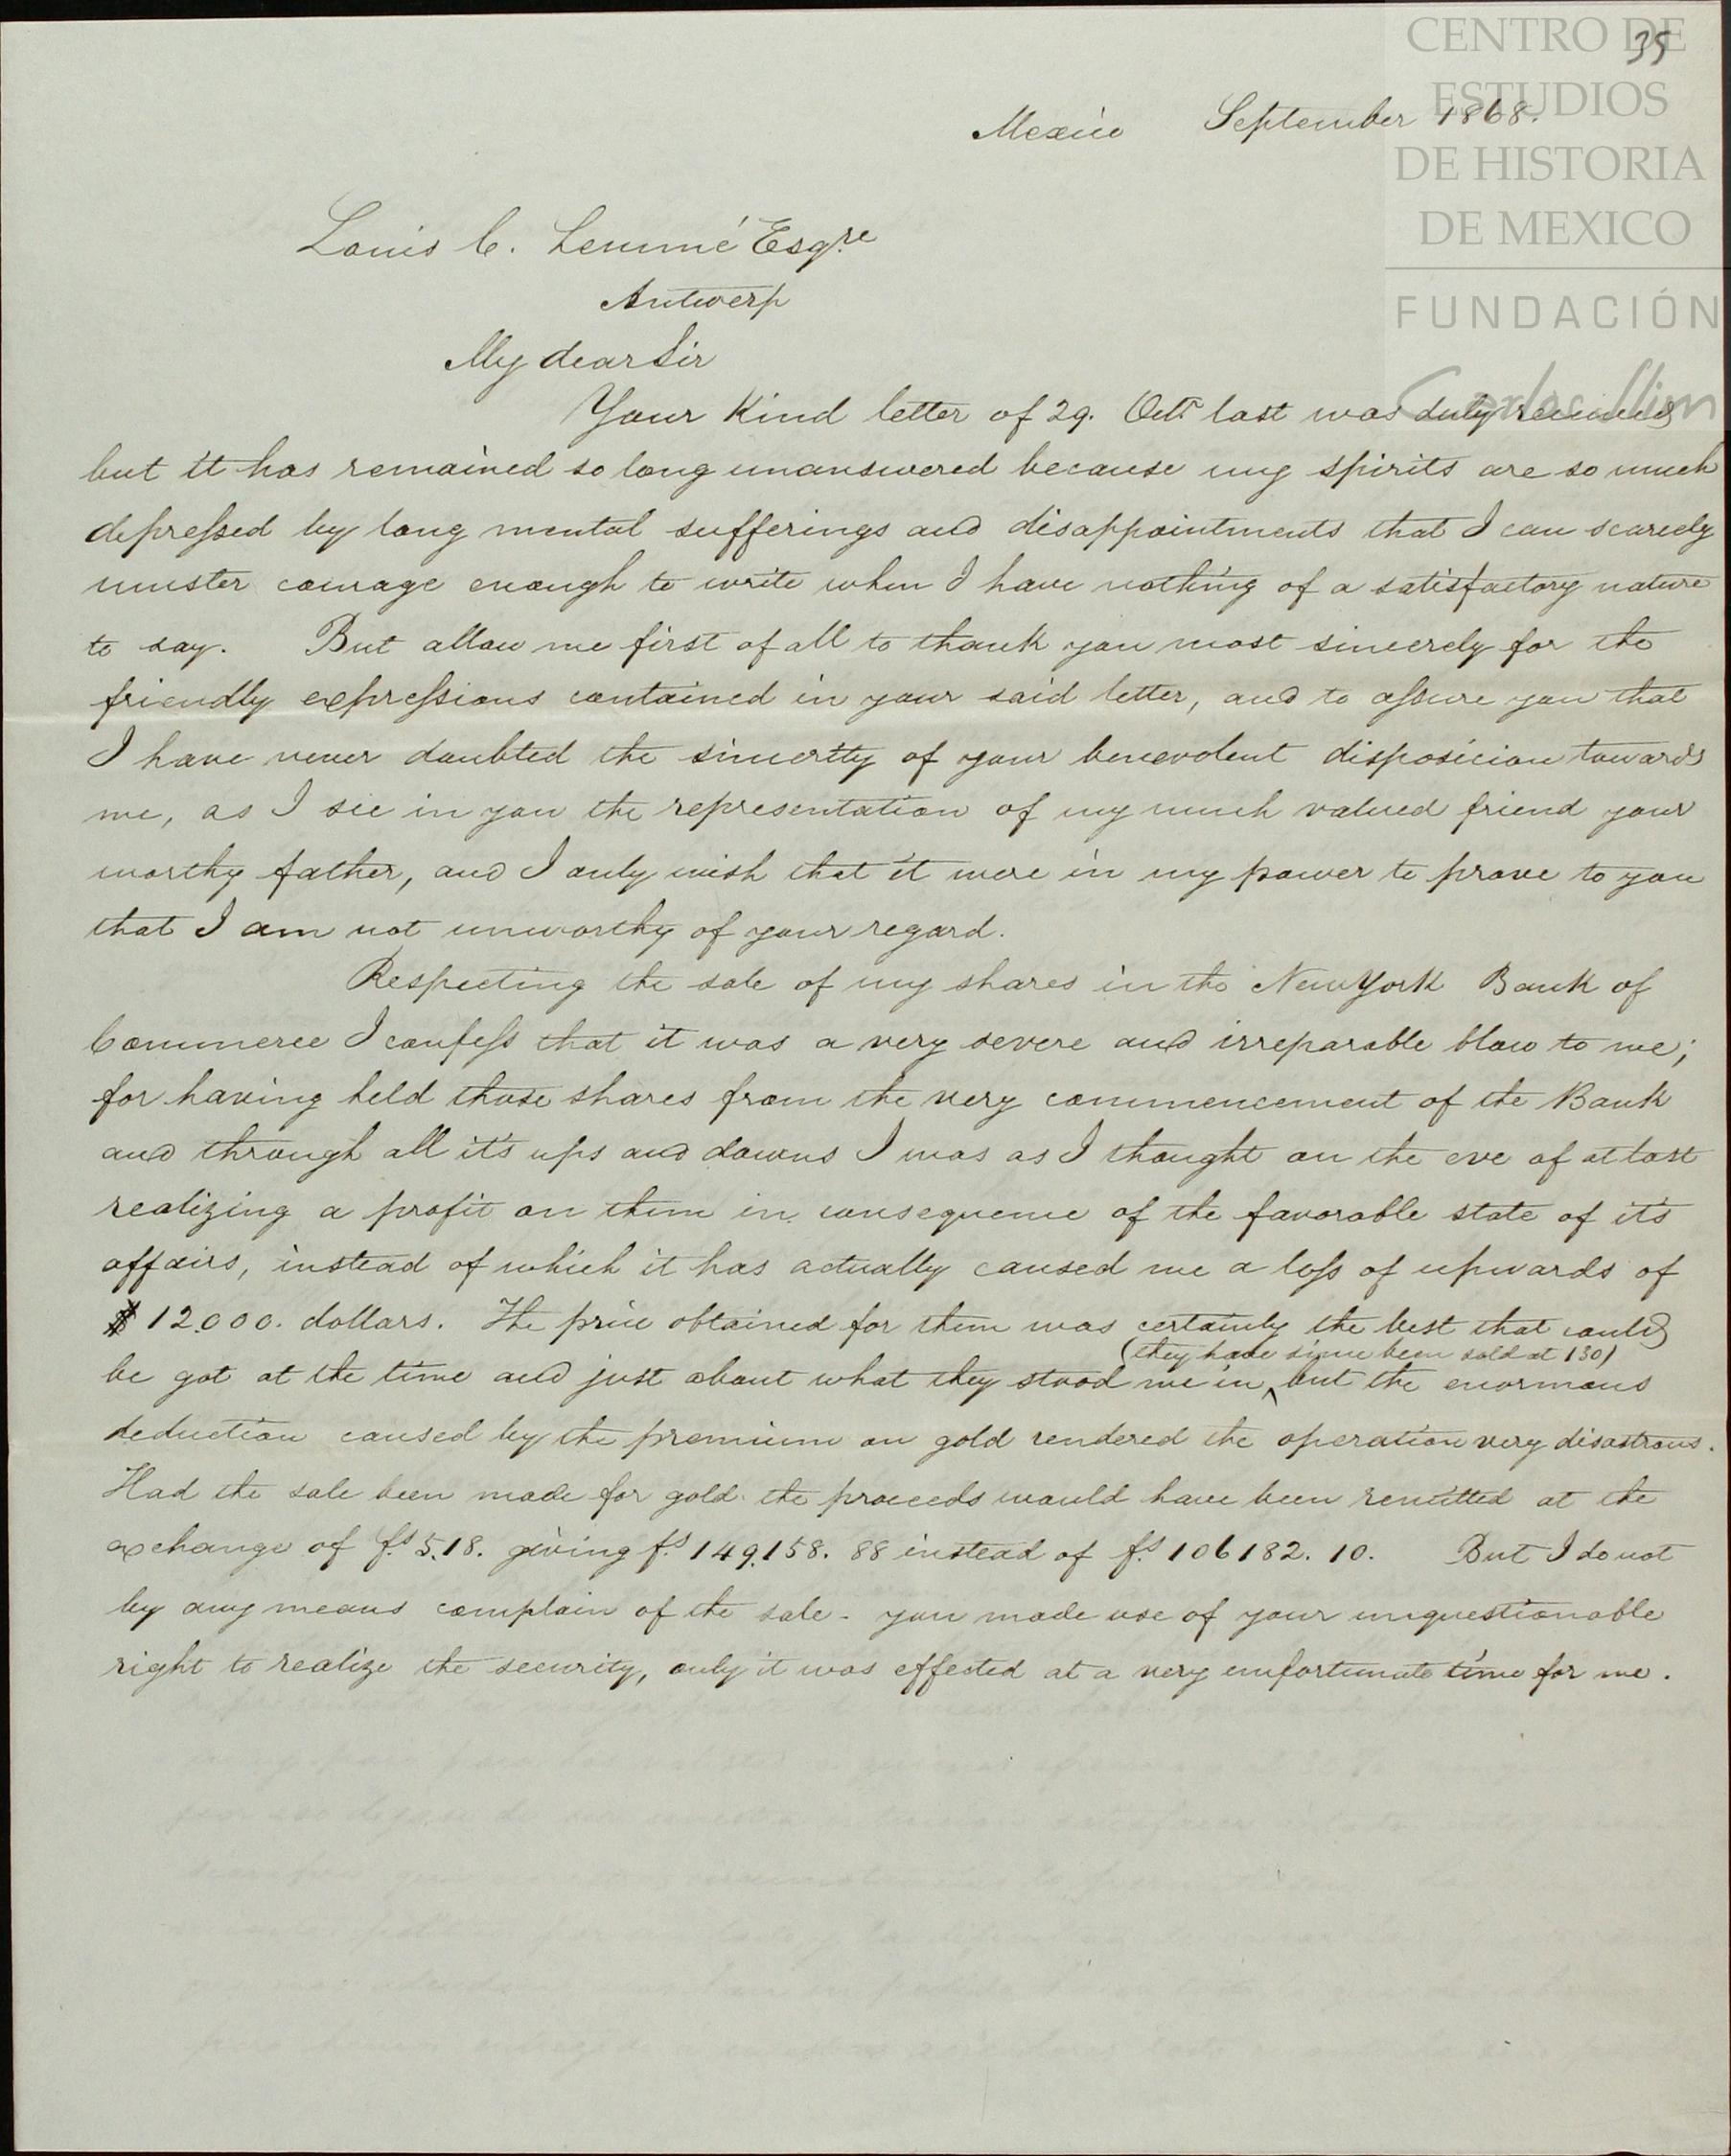 35
CENTRO DE
ESTUDIOS
DE HISTORIA
DE MEXICO
FUNDACIÓN
Carlos Slim
Mexico September 1868.
Louis C. Lemmé Esqre
Antwerp
My dear Sir
Your Kind letter of 29. Octr last was duly received
but it has remained so long unanswered because my spirits are so much
depressed by long mental sufferings and disappointments that I can scarcely
muster courage enough to write when I have nothing of a satisfactory nature
to say. But allow me first of all to thank you most sincerely for the
friendly expressions contained in your said letter, and to assure you that
I have never doubted the sincerity of your benevolent disposicion towards
me, as I see in you the representation of my much valued friend your
worthy father, and I only wish that it were in my power to prove to you
that I am not unworthy of your regard.
Respecting the sale of my shares in the New York Bank of
Commerce I confess that it was a very severe and irreparable blow to me;
for having held those shares from the very commencement of the Bank
and through all it's ups and downs I was as I thought on the eve of at last
realizing a profit on them in consequence of the favorable state of it's
affairs, instead of which it has actually caused me a loss of upwards of
$ 12.000. dollars. The price obtained for them was certainly the best that could
be got at the time and just about what they stood me in (they have since been sold at 130) but the enormous
deduction caused by the premium on gold rendered the operation very disastrous.
Had the sale been made for gold the proceeds would have been remitted at the
exchange of fs 5.18. giving fs 149.158. 88 instead of fs 106182. 10. But I do not
by any means complain of the sale - you made use of your unquestionable
right to realize the security, only it was effected at a very unfortunate time for me.